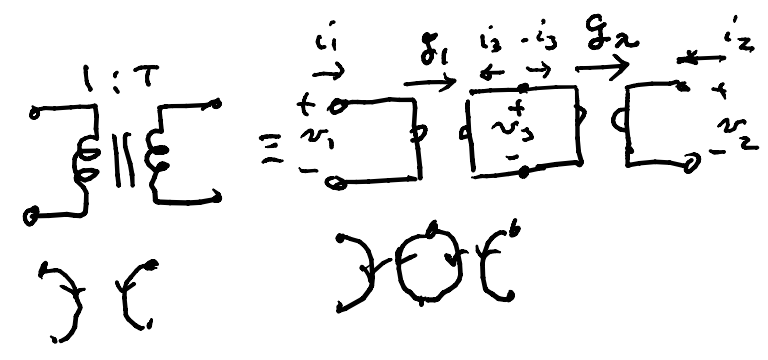 i₁ g₁ i₃ -i₃ g₂ i₂
1 : T
+ + +
≡ v₁ v₃ v₂
- - -